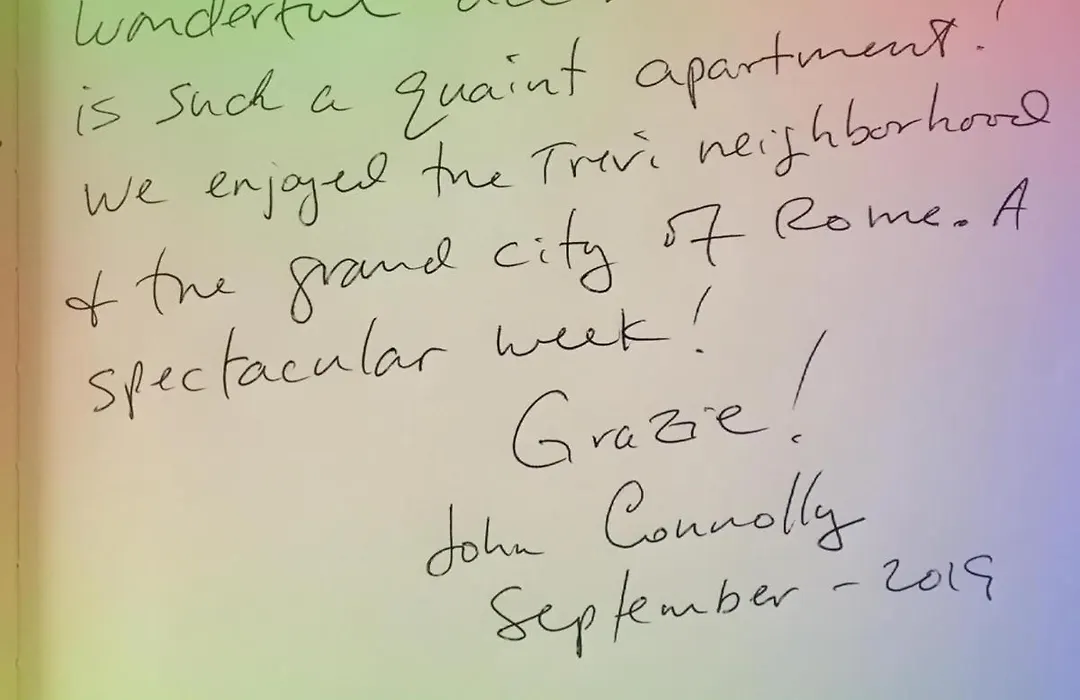 wonderful
is such a quaint apartment!
We enjoyed the Trevi neighborhood
& the grand city of Rome. A
spectacular week!
Grazie!
John Connolly
September - 2019